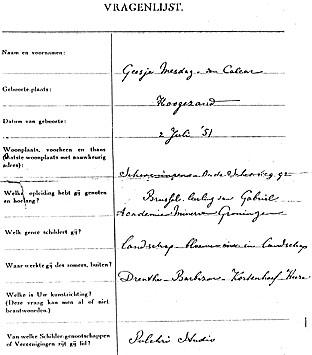 VRAGENLIJST.
Naam en voornamen:
Geesje Mesdag - van Calcar
Geboorteplaats:
Hoogezand
Datum van geboorte:
2 Juli '51
Woonplaats, voorheen en thans
(laatste woonplaats met nauwkeurig
adres):
Scheveningen - Oude Scheveng. 92
Welke opleiding hebt gij genoten
en hoelang?
Brussel. leerling van Gabriël
Academie Minerva Groningen
Welk genre schildert gij?
landschap - bloemen in landschap
Waar werkte gij des zomers, buiten?
Drenthe - Barbizon - Kortenhoef
Welke is Uw kunstrichting?
(Deze vraag kan men al of niet
beantwoorden.)
Van welke Schilder-genootschappen
of Vereenigingen zijt gij lid?
Pulchri Studio